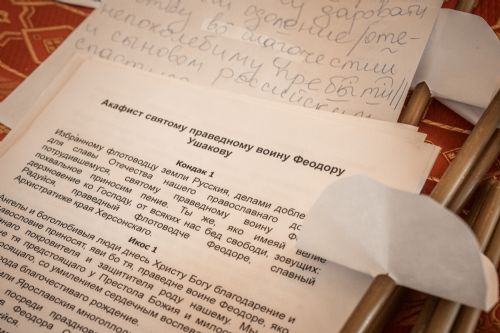 даровати
одоление
ству во благочестии
непоколебиму пребыти//
и сыновом российским
Акафист святому праведному воину Феодору
Ушакову
Кондак 1
Избранному флотоводцу земли Русския, делами добле
для славы Отечества нашего православнаго до
потрудившемуся, святому праведному воину Фе
похвальное приносим пение. Ты же, яко имеяй велие
дерзновение ко Господу, от всяких нас бед свободи, зовущих:
Радуйся, праведный флотоводче Феодоре, славный
Архистратиже края Херсонскаго.
Икос 1
Ангелы и боголюбивыя люди днесь Христу Богу благодарение и
славословие приносят, яви бо тя, праведне воине Феодоре, яко
покровителя и защитителя роду нашему. Мы
тя предстоящаго у Престола Божия и милос
со умилением сердечным воспев
рода благочестиваго рождение.
Ярославския многопло
посреди празднова
Феодора С